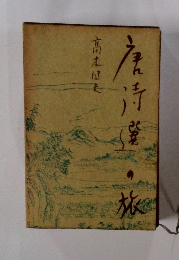 唐詩選の旅
高木健夫